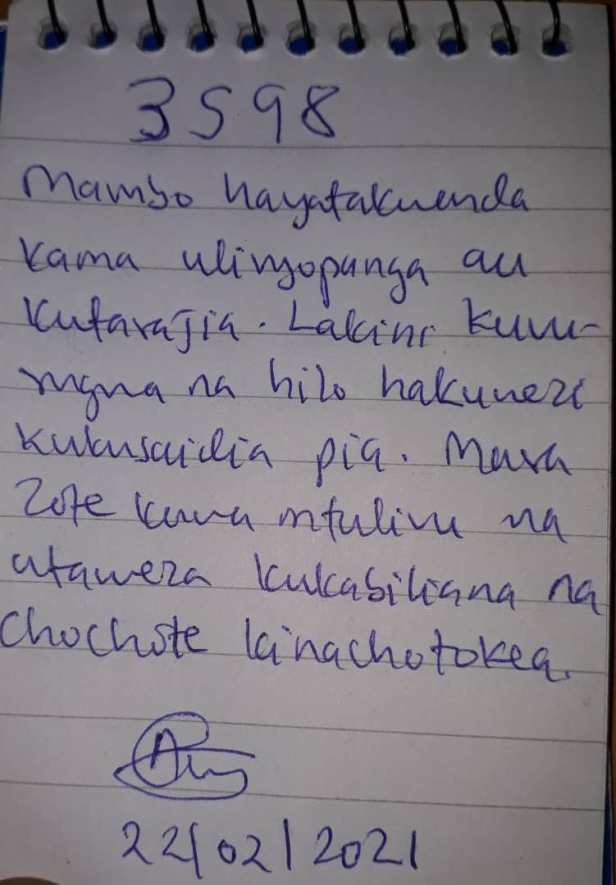 3598
Mambo hayatakuenda
kama ulivyopanga au
kutarajia. Lakini kuvu-
mgna na hilo hakunezi
kukusaidia pia. Mara
Zote kuwa mtulivu na
utaweza kukabiliana na
chochote kinachotokea.
22/02/2021